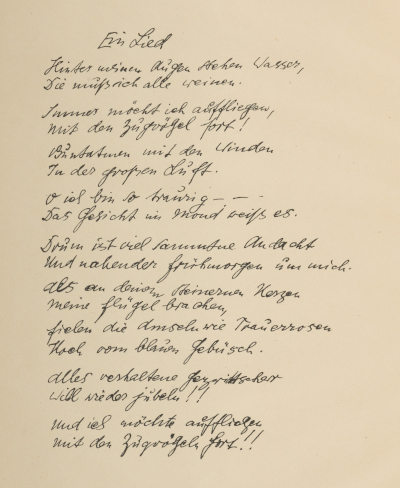 Ein Lied
Hinter meinen Augen stehen Wasser,
Die muß ich alle weinen.
Immer möcht ich auffliegen,
Mit den Zugvögel fort!
Buntatmen mit den Winden
In der großen Luft.
O ich bin so traurig – –
Das Gesicht im Mond weiß es.
Drum ist viel sammtne Andacht
Und nahender Frühmorgen um mich.
Als an deinem steinernen Herzen
Meine Flügel brachen,
Fielen die Amseln wie Trauerrosen
Hoch vom blauen Gebüsch.
Alles verhaltene Gezwitscher
Will wieder jubeln!!
Und ich möchte auffliegen
Mit den Zugvögeln fort!!